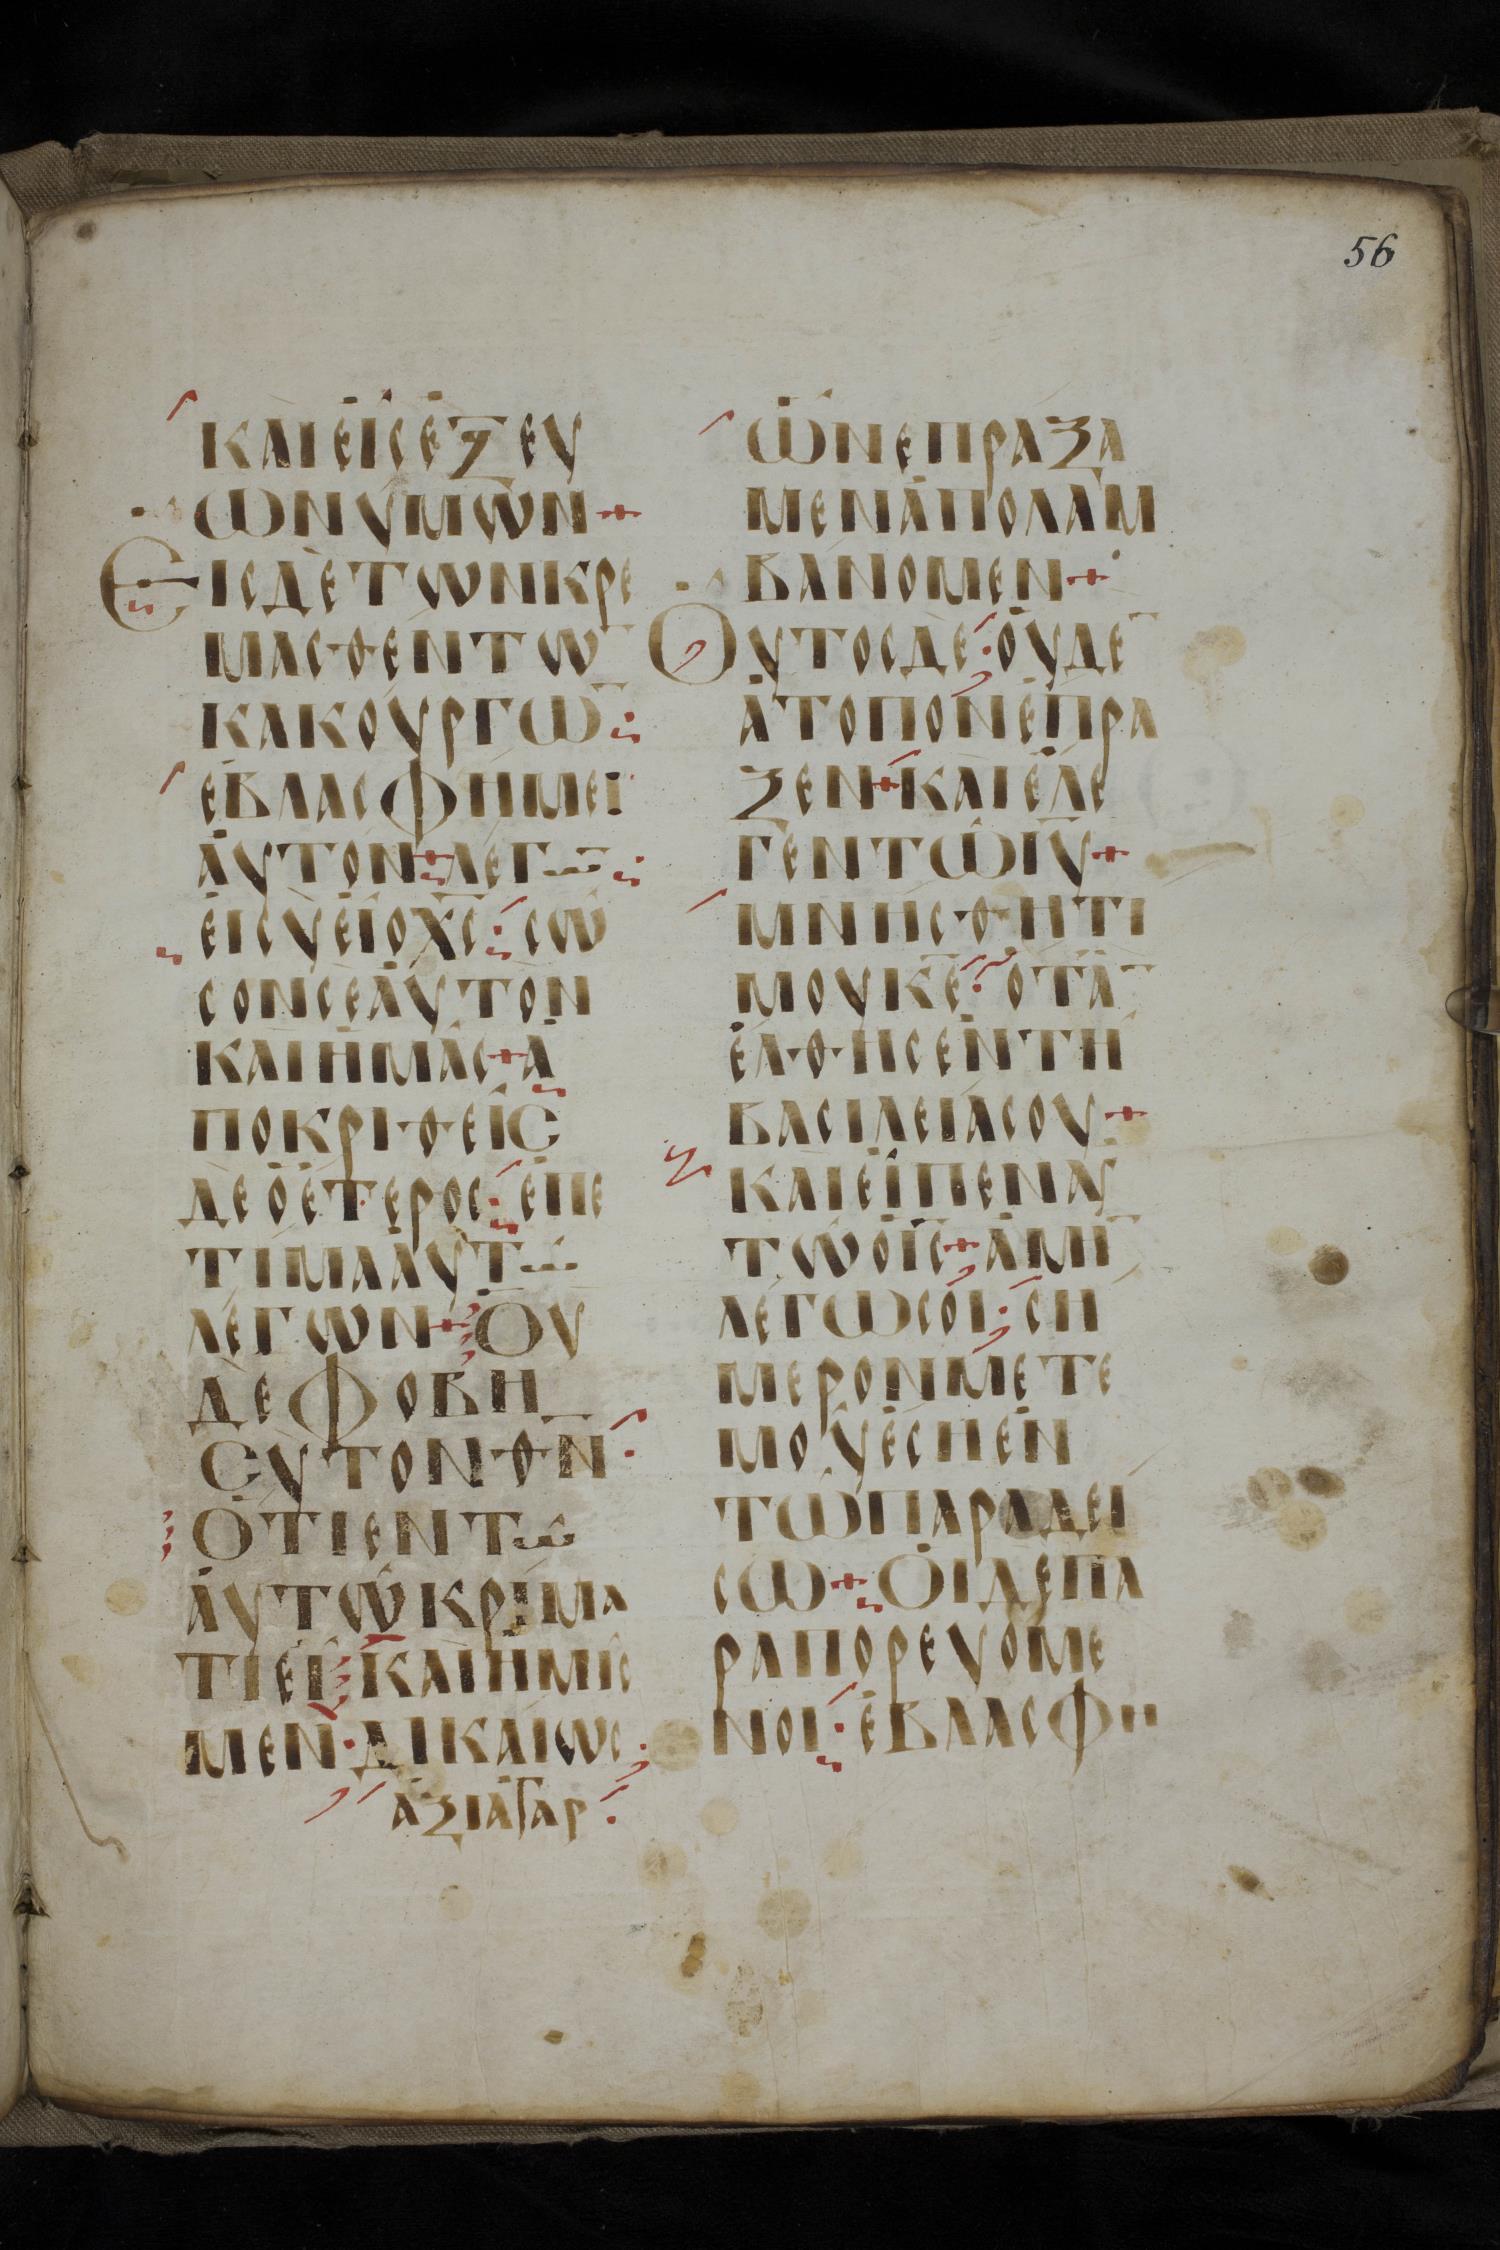 56
ΚΑΙΕΙΣΕΞΕΥ
ΩΝΥΜΩΝ+
ΕΙΣΔΕΤΩΝΚΡΕ
ΜΑΣΘΕΝΤΩ̅
ΚΑΚΟΥΡΓΩ̅:
ΕΒΛΑΣΦΗΜΕΙ
ΑΥΤΟΝ+ΛΕΓΩ̅:
ΕΙΣΥΕΙΟΧ̅Σ̅:ΣΩ
ΣΟΝΣΕΑΥΤΟΝ
ΚΑΙΗΜΑΣ+Α
ΠΟΚΡΙΘΕΙΣ
ΔΕΟΕΤΕΡΟΣ:ΕΠΕ
ΤΙΜΑΑΥΤΩ
ΛΕΓΩΝ+ΟΥ
ΔΕΦΟΒΗ
ΣΥΤΟΝΘ̅Ν̅:
ΟΤΙΕΝΤΩ
ΑΥΤΩΚΡΙΜΑ
ΤΙΕΙ:ΚΑΙΗΜΙΣ
ΜΕΝ·ΔΙΚΑΙΩΣ·
ΑΞΙΑΓΑΡ:
ΩΝΕΠΡΑΞΑ
ΜΕΝΑΠΟΛΑΜ
ΒΑΝΟΜΕΝ+
ΟΥΤΟΣΔΕ:ΟΥΔΕ̅
ΑΤΟΠΟΝΕΠΡΑ
ΞΕΝ+ΚΑΙΕΛΕ
ΓΕΝΤΩΙ̅Υ̅+
ΜΝΗΣΘΗΤΙ
ΜΟΥΚ̅Ε̅:ΟΤΑ̅
ΕΛΘΗΣΕΝΤΗ
ΒΑΣΙΛΕΙΑΣΟΥ+
ΚΑΙΕΙΠΕΝΑΥ
ΤΩΟΙ̅Σ̅+ΑΜΗ̅
ΛΕΓΩΣΟΙ:ΣΗ
ΜΕΡΟΝΜΕΤΕ
ΜΟΥΕΣΗΕΝ
ΤΩΠΑΡΑΔΕΙ
ΣΩ+ΟΙΔΕΠΑ
ΡΑΠΟΡΕΥΟΜΕ
ΝΟΙ:ΕΒΛΑΣΦΗ